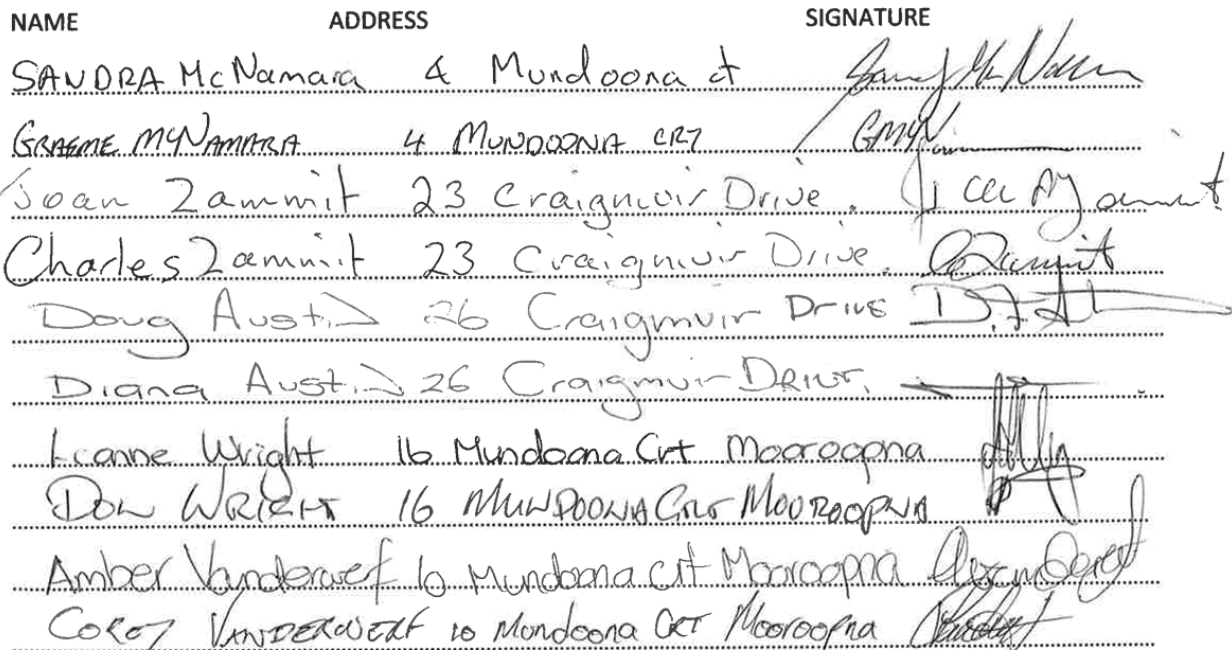 NAME ADDRESS SIGNATURE
SANDRA McNamara 4 Mundoona ct
GRAEME McNAMARA 4 MUNDOONA CRT
Joan Zammit 23 Craigmuir Drive.
Charles Zammit 23 Craigmuir Drive. CZammit
Doug Austin 26 Craigmuir Drive
Diana Austin 26 Craigmuir DRIVE.
Leanne Wright 16 Mundoona Crt Mooroopna
DON WRIGHT 16 MUNDOONA CRT MOOROOPNA
Amber Vanderwerf 10 Mundoona crt Mooroopna
COREY VANDERWERF 10 Mundoona CRT Mooroopna